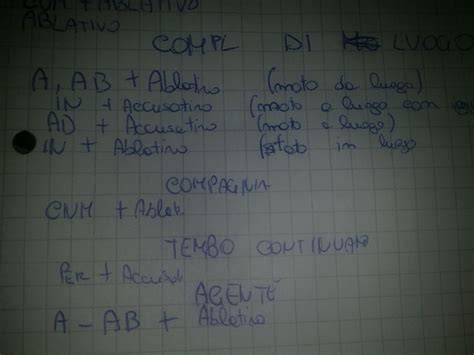 CUM + ABLATIVO
ABLATIVO
COMPL DI LUOGO
A, AB + Ablativo (moto da luogo)
IN + Accusativo (moto a luogo con
AD + Accusativo (moto a luogo)
IN + Ablativo (stato in luogo
COMPAGNIA
CUM + Ablat.
TEMBO CONTINUATO
PER + Accusat
AGENTE
A - AB + Ablativo